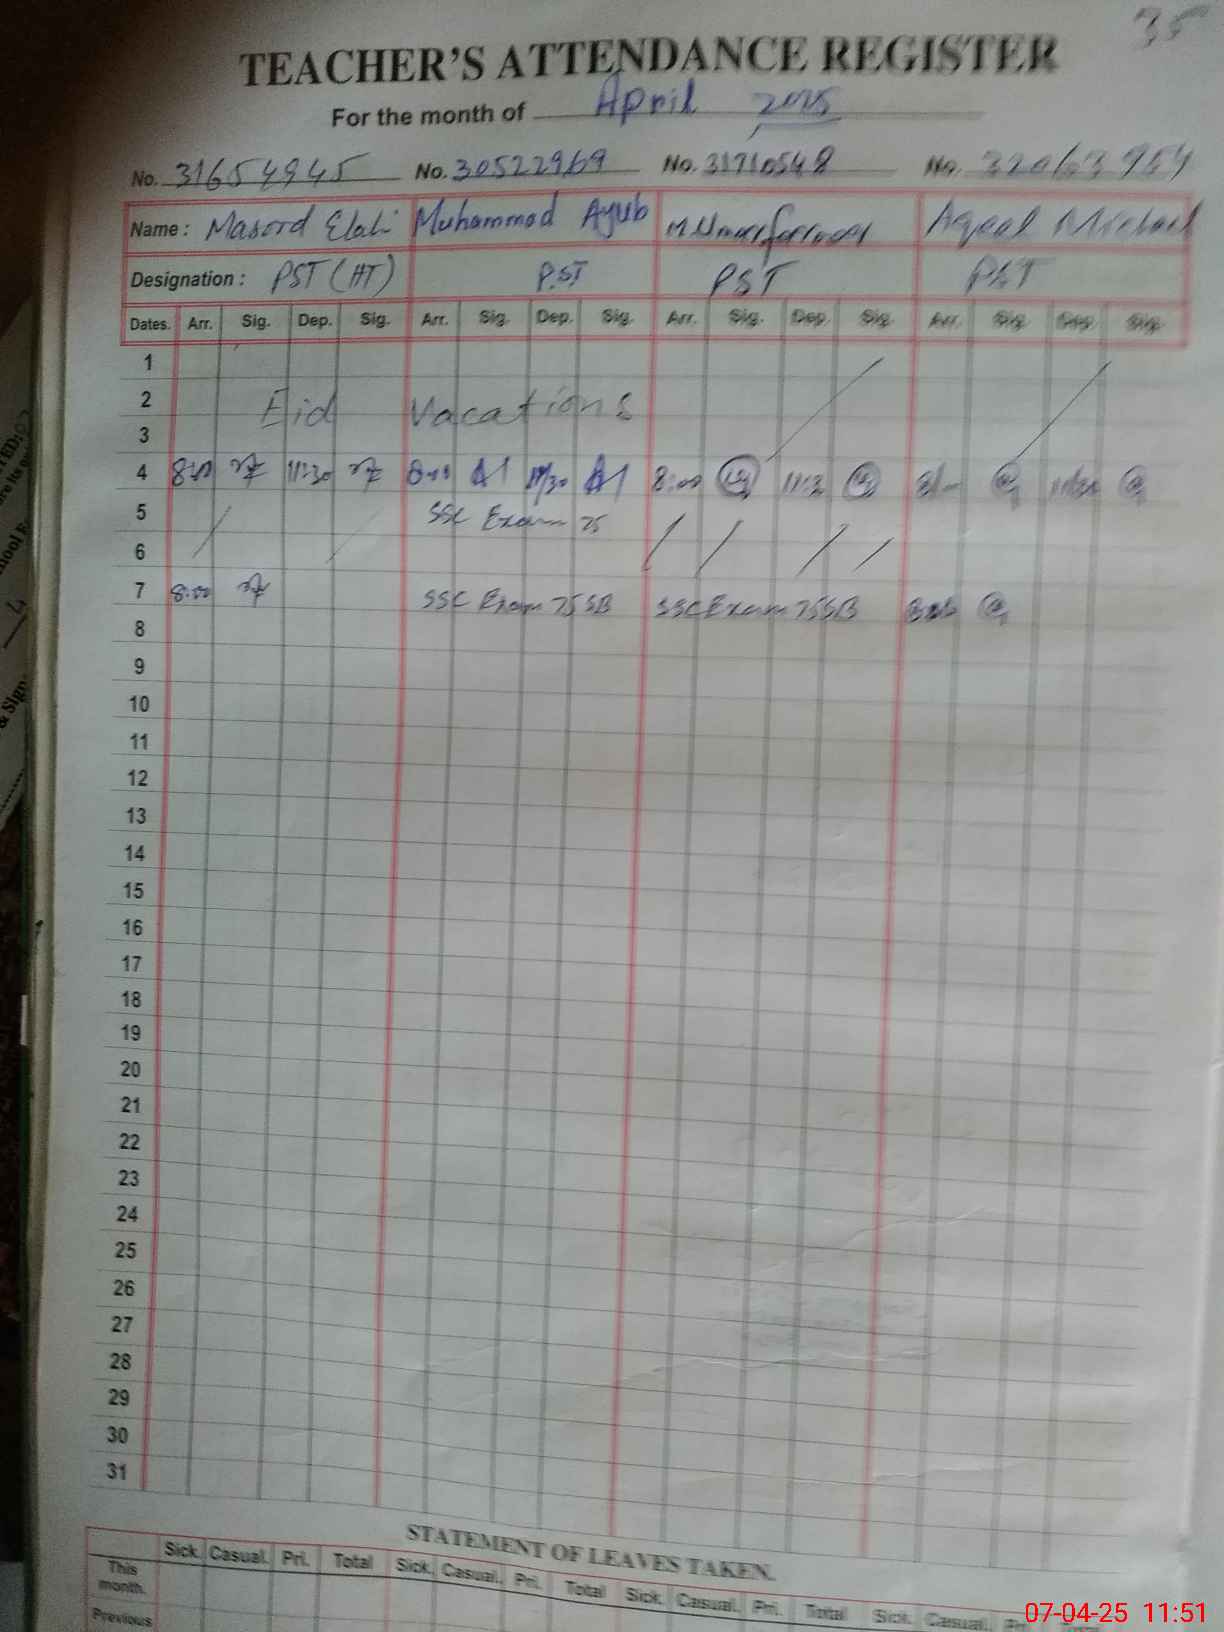 35
TEACHER'S ATTENDANCE REGISTER
For the month of April 2025
No. 31654945 No. 30522969 No. 31710548 No. 32063954
Name : Masood Elahi Muhammad Ayub M Umar Farooq Aqeel Michael
Designation : PST (HT) P.ST PST PST
Dates. Arr. Sig. Dep. Sig. Arr. Sig. Dep. Sig. Arr. Sig. Dep. Sig. Arr. Sig. Dep. Sig.
1
2 Eid Vacations
3
4 8:00 11:30 8:00 11/30 8:00 11:3 8/- 11/30
5 SSC Exam 25
6
7 8:00 SSC Exam 25 SB SSC Exam 25 SB 8:00
8
9
10
11
12
13
14
15
16
17
18
19
20
21
22
23
24
25
26
27
28
29
30
31
STATEMENT OF LEAVES TAKEN.
Sick. Casual. Pri. Total Sick. Casual. Pri. Total Sick. Casual. Pri. Total Sick. Casual. Pri. Total
This month.
Previous
07-04-25 11:51